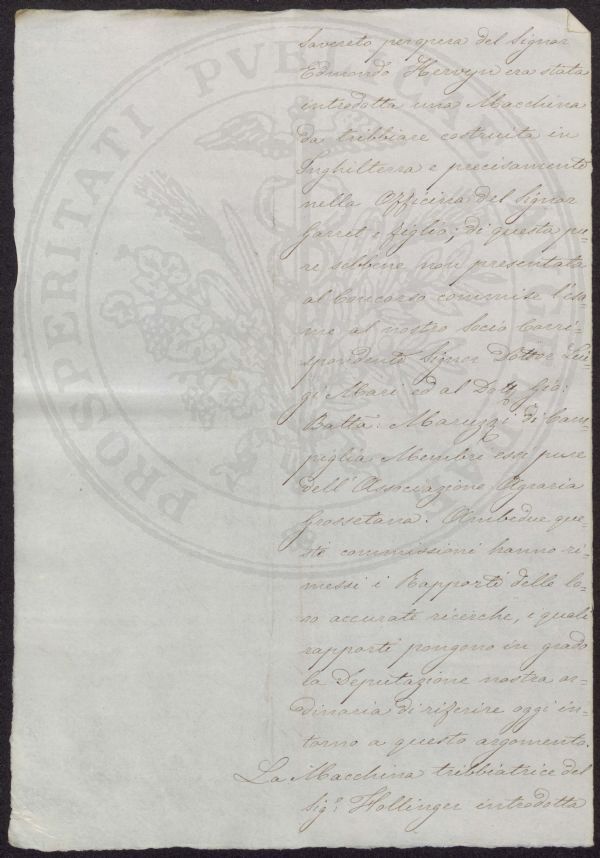 Savereto per opera del Signor
Edmondo Hervyn era stata
introdotta una Macchina
da tribbiare costruita in
Inghilterra e precisamente
nella Officina del Signor
Garret e figlio; di questa pu=
re sebbene non presentata
al Concorso commise l'esa=
me al nostro Socio Corri=
spondente Signor Dottor Lui=
gi Mari ed al Dott. Gio:
Batta. Maruzzi di Cam=
piglia Membri essi pure
dell'Associazione Agraria
Grossetana. Ambedue que=
ste commissioni hanno ri=
messi i Rapporti delle lo=
ro accurate ricerche, i quali
rapporti pongono in grado
la Deputazione nostra or=
dinaria di riferire oggi in=
torno a questo argomento.
La Macchina tribbiatrice del
Sigr. Hollinger introdotta
PROSPERITATI PVBLICAE